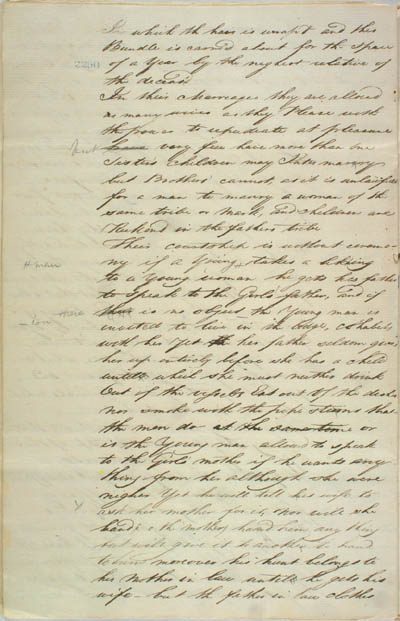 In which th hair is wrapt and this
Bundle is carried about for the space
2290
of a year by the nighest relative of
the deceasd
In their Marriages they are allowed
as many wives as they Please with
the power to repudiate at pleasure
but very few have more than one
Sisters children may Intermarry
but Brothers cannot, as it is unlawful
for a man to marry a woman of the
same tribe or Mark, and children are
Reckend in the fathers tribe
Their courtship is without ceremo-
ny if a Young takes a likeing
to a Young woman he gets his father
to speak to the Girls father, and if
there is no object the Young man is
invited to live in the lodge, cohabits
with her Yet her father seldom gives
her up intirely before she has a child
untill which she must neither drink
Out of the vessels Eat out of the dishes
nor smoke with the pipe stems that
the men do at the same time or
is the Young man allowed to speak
to the Girls mother if he wants any
thing from her although she were
nigher Yet he will tell his wife to
ask her mother for it, nor will she
hand the mother hand him any thing
but will give it to another to hand
to him moreover his hunt belongs to
his Mother in law untill he gets his
wife - but the father in law clothes